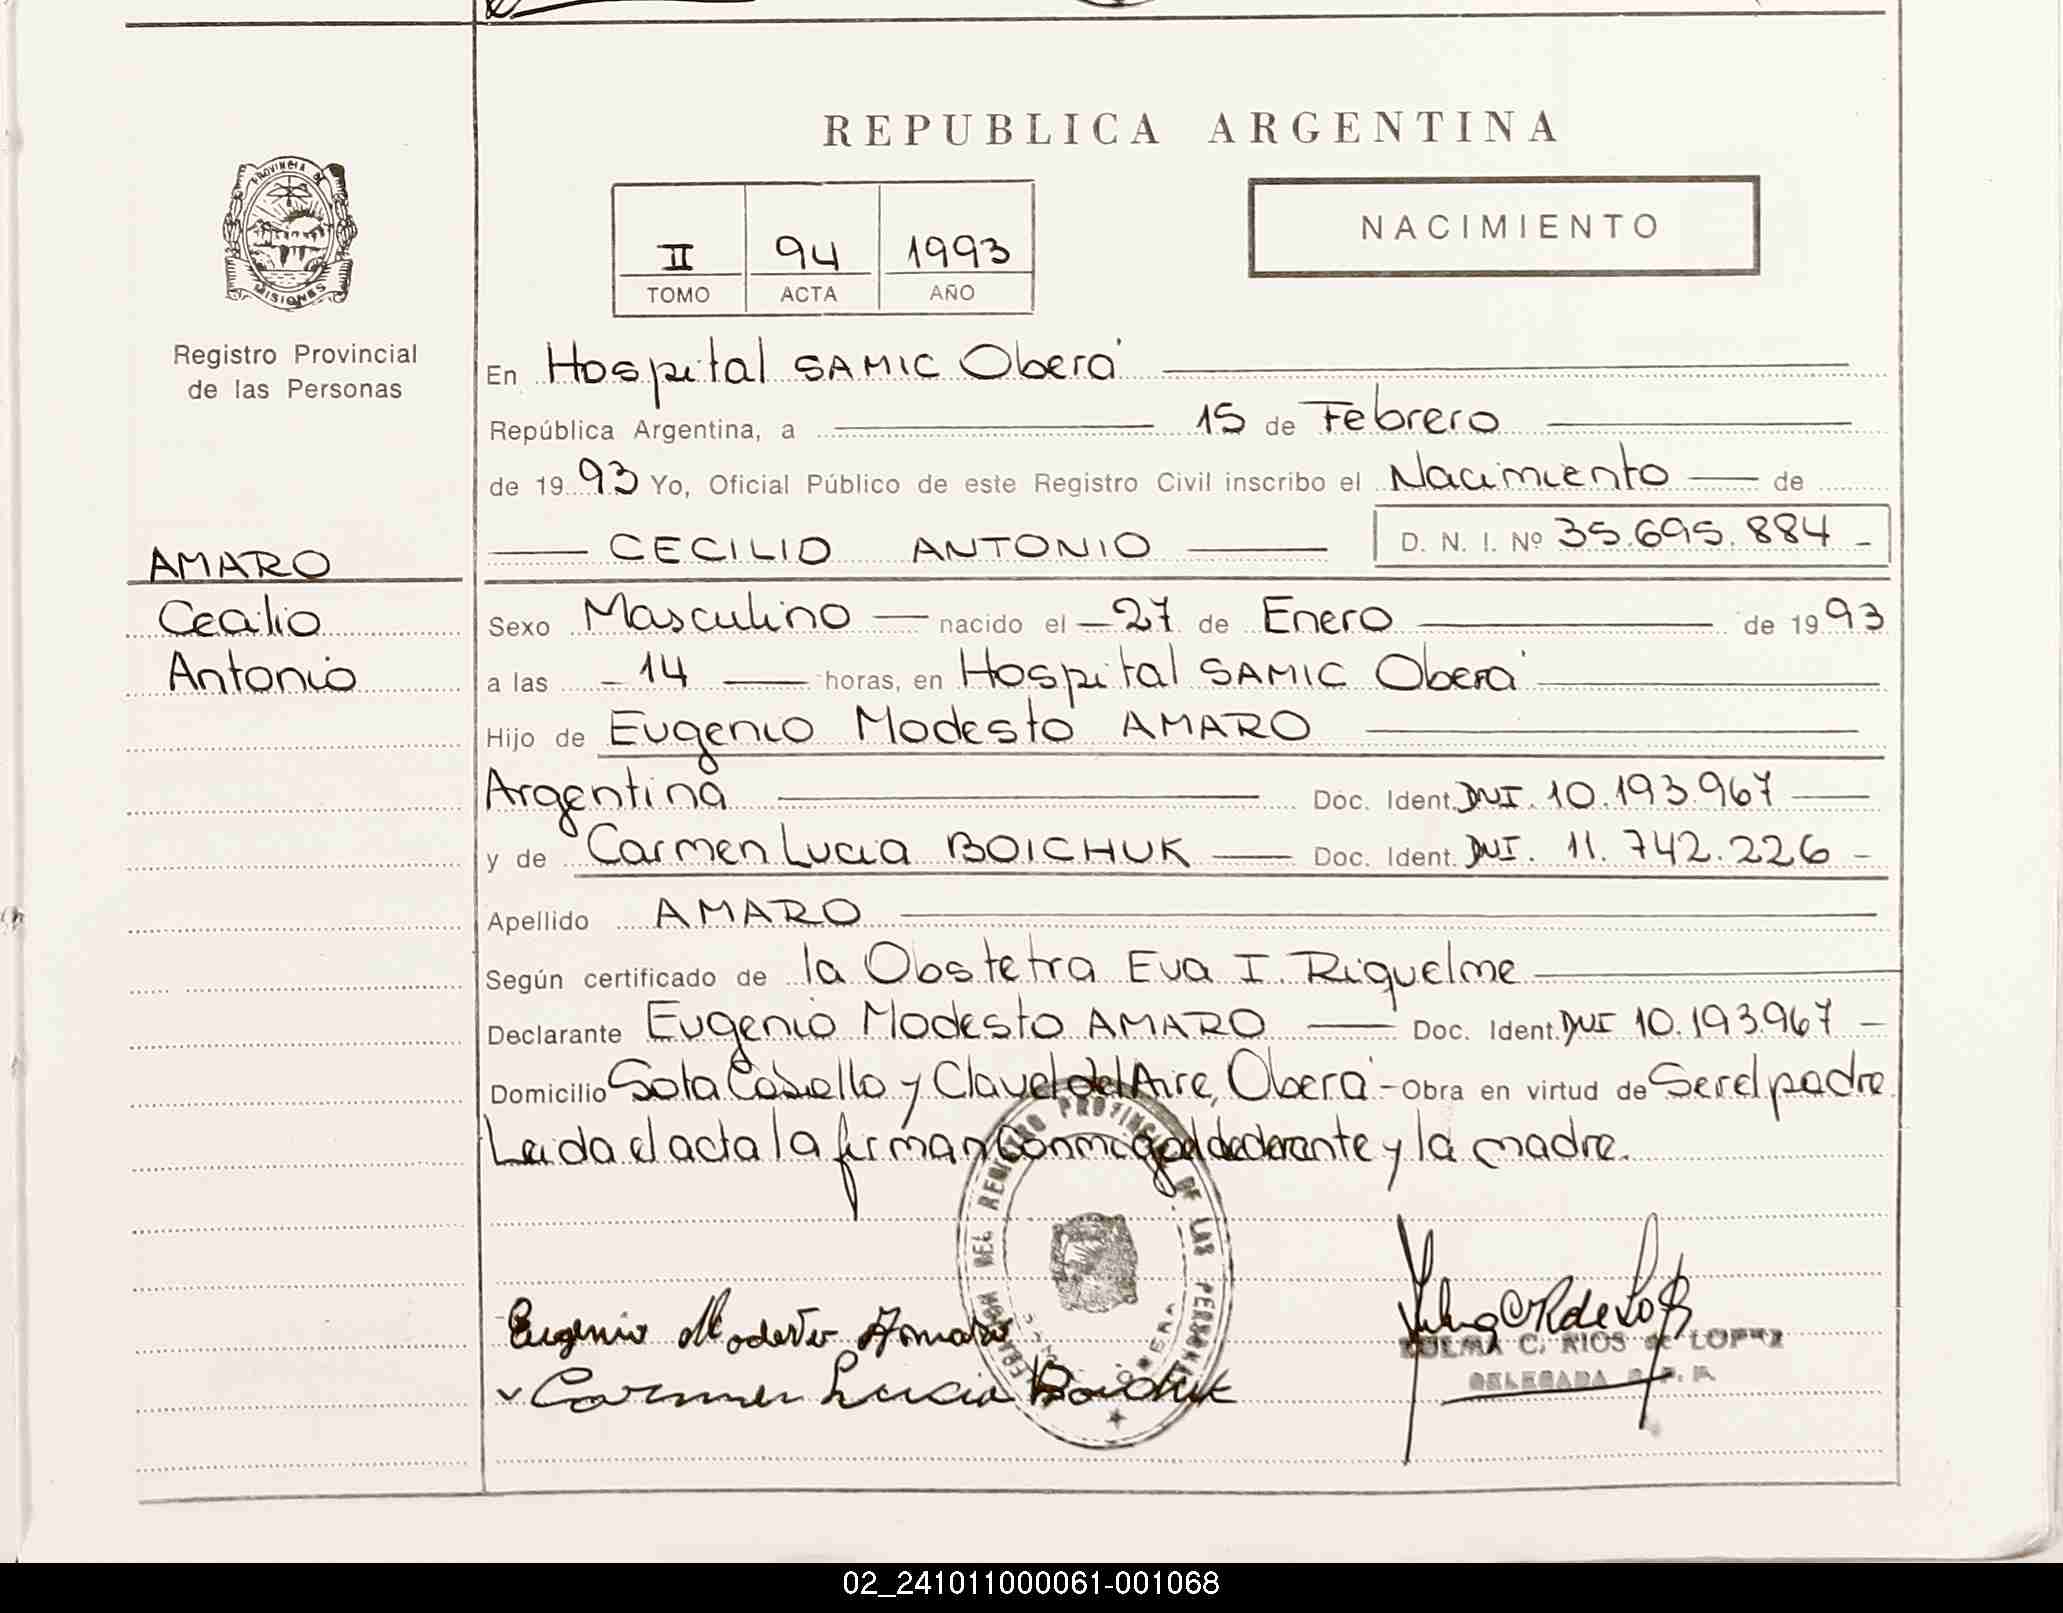 REPUBLICA ARGENTINA
PROVINCIA DE
MISIONES
Registro Provincial
de las Personas
II 94 1993
TOMO ACTA AÑO
NACIMIENTO
En Hospital SAMIC Oberá
República Argentina, a 15 de Febrero
de 1993 Yo, Oficial Público de este Registro Civil inscribo el Nacimiento de
CECILIO ANTONIO D. N. I. Nº 35.695.884
AMARO
Cecilio
Antonio
Sexo Masculino nacido el 27 de Enero de 1993
a las 14 horas, en Hospital SAMIC Oberá
Hijo de Eugenio Modesto AMARO
Argentina Doc. Ident. DNI. 10.193.967
y de Carmen Lucia BOICHUK Doc. Ident. DNI. 11.742.226
Apellido AMARO
Según certificado de la Obstetra Eva I. Riquelme
Declarante Eugenio Modesto AMARO Doc. Ident. DNI 10.193.967
Domicilio Sota y Clavel del Aire, Oberá - Obra en virtud de Ser el padre
Leida el acta la firman Conmigo el declarante y la madre.
DEL REGISTRO PROVINCIAL DE LAS PERSONAS
OBERA
Eugenio Modesto Amaro
Carmen Lucia Boichuk
ZULMA C. RIOS de LOPEZ
DELEGADA R.P.P.
02_241011000061-001068